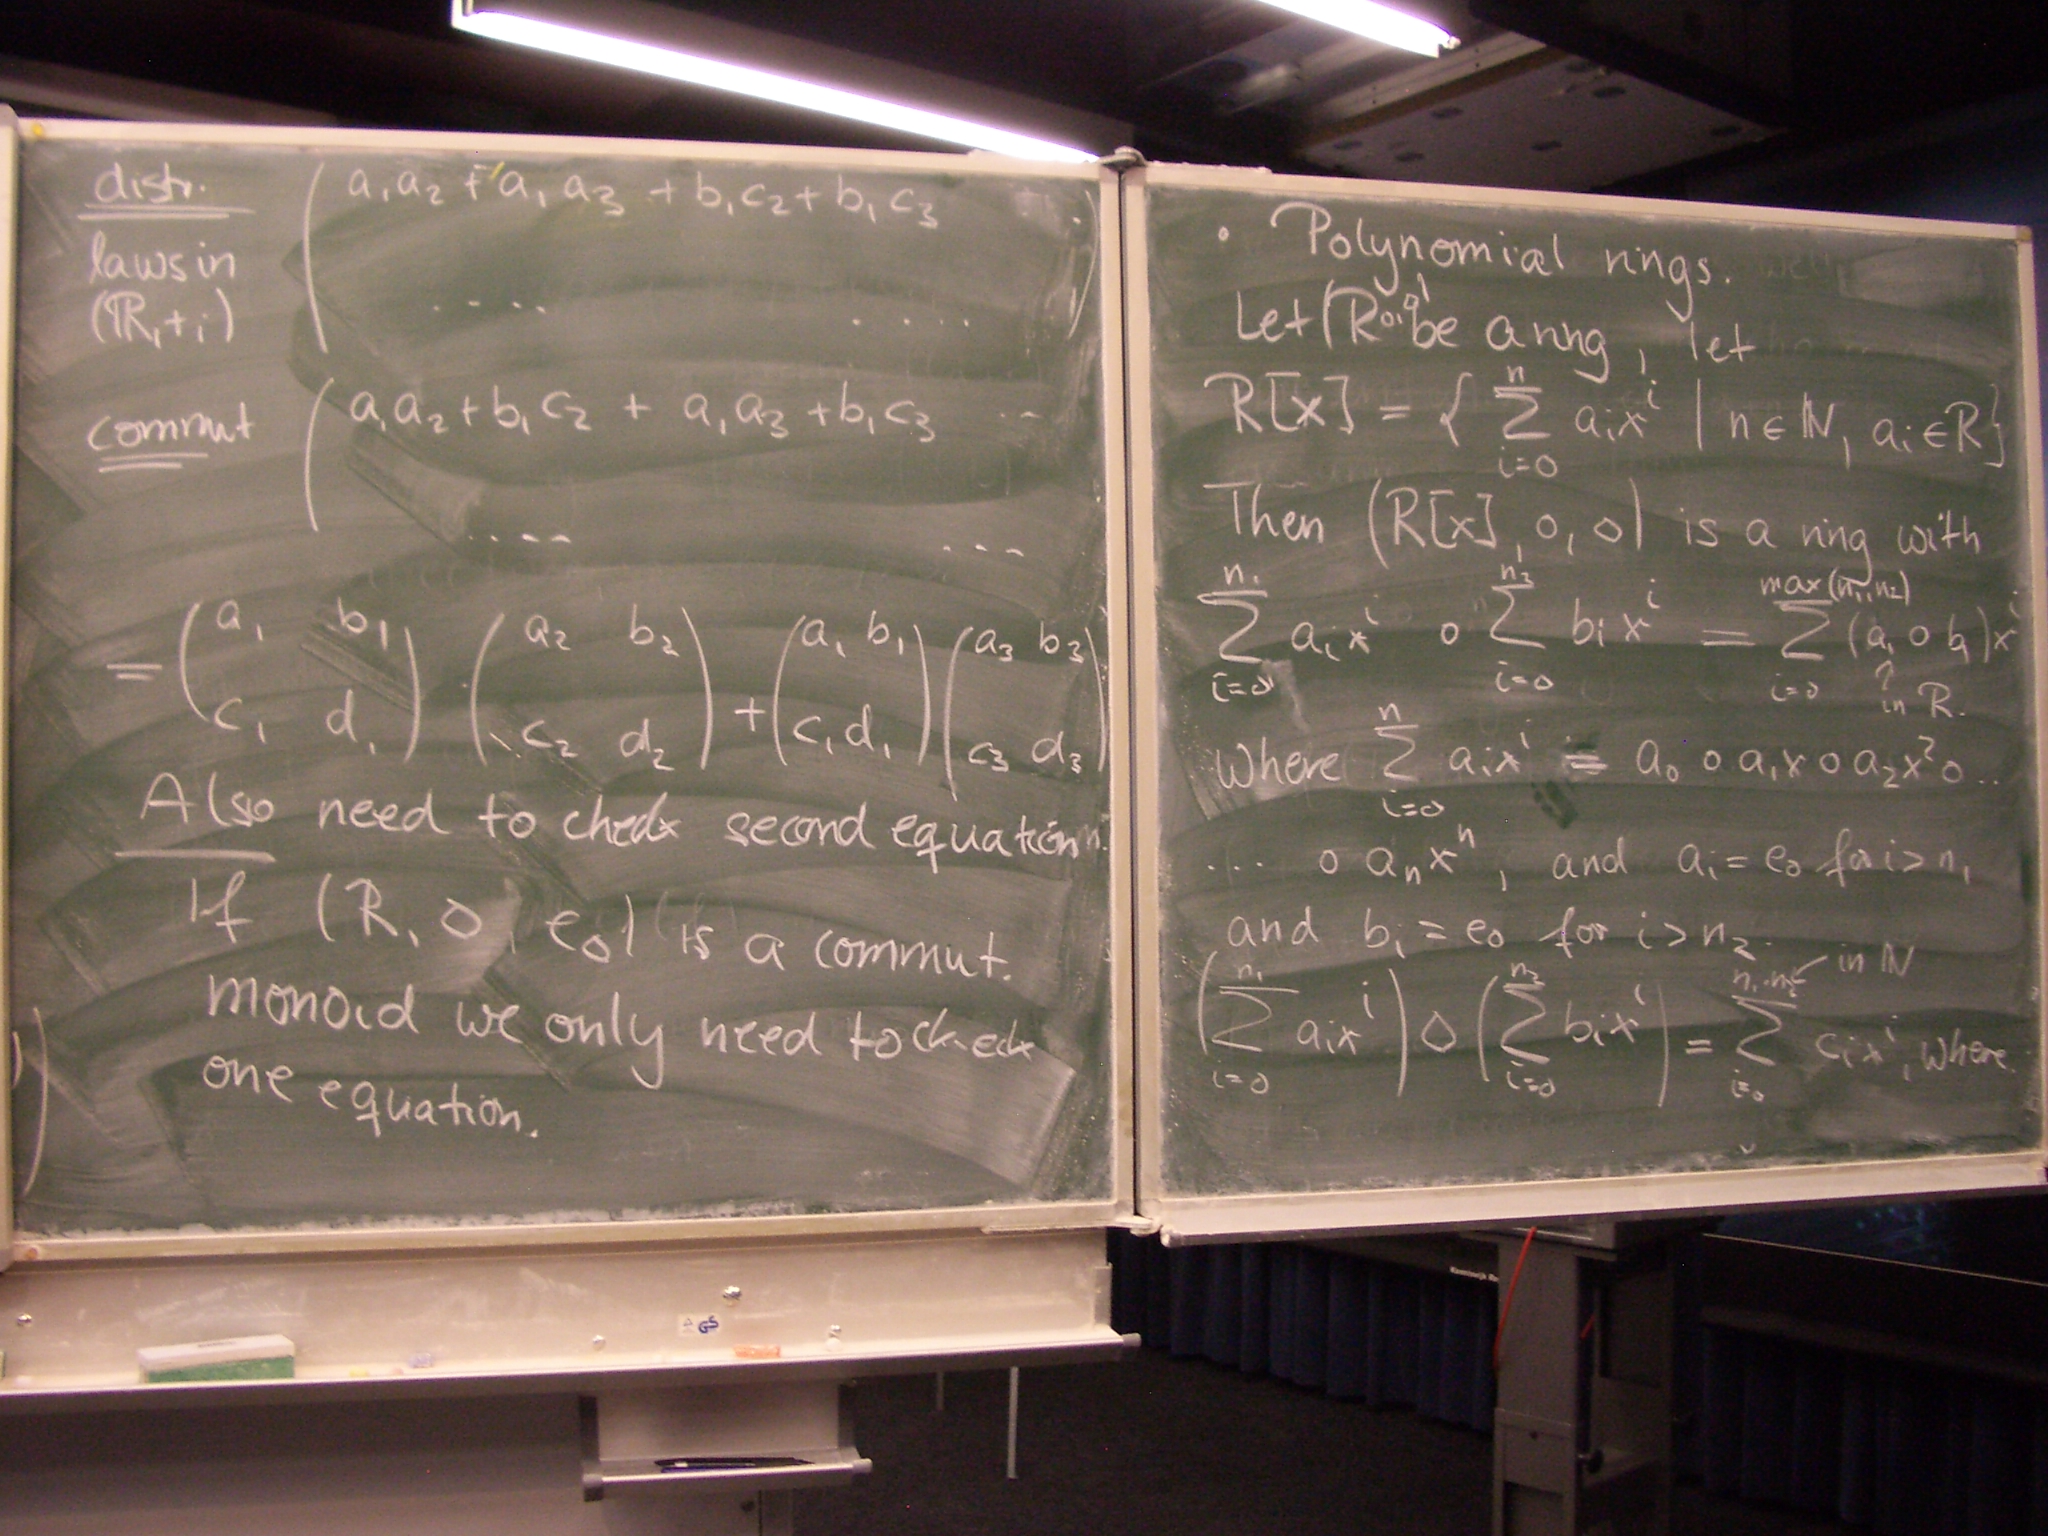 distr.
laws in
(ℝ,+,·)
( a₁a₂ + a₁a₃ + b₁c₂ + b₁c₃ . )
. . . . . . . .
commut
( a₁a₂ + b₁c₂ + a₁a₃ + b₁c₃ ..
..... ...
= ( a₁ b₁ ) · ( a₂ b₂ ) + ( a₁ b₁ ) ( a₃ b₃ )
( c₁ d₁ ) ( c₂ d₂ ) ( c₁ d₁ ) ( c₃ d₃ )
Also need to check second equation.
If (R, ◇, e◇) is a commut.
monoid we only need to check
one equation.
• Polynomial rings.
Let (R be a ring, let
R[x] = { ∑ᵢ₌₀ⁿ aᵢxⁱ | n ∈ ℕ, aᵢ ∈ R}
Then (R[x], o, ◇) is a ring with
∑ᵢ₌₀ⁿ¹ aᵢxⁱ o ∑ᵢ₌₀ⁿ² bᵢxⁱ = ∑ᵢ₌₀ max(n₁,n₂) (aᵢ o bᵢ)xⁱ
↑ in R.
Where ∑ᵢ₌₀ⁿ aᵢxⁱ = a₀ o a₁x o a₂x² o ..
.... o aₙxⁿ, and aᵢ = e₀ for i > n₁
and bᵢ = e₀ for i > n₂.
(∑ᵢ₌₀ⁿ¹ aᵢxⁱ) ◇ (∑ᵢ₌₀ⁿ² bᵢxⁱ) = ∑ᵢ₌₀ n₁·n₂ cᵢxⁱ, where
← in ℕ
GS